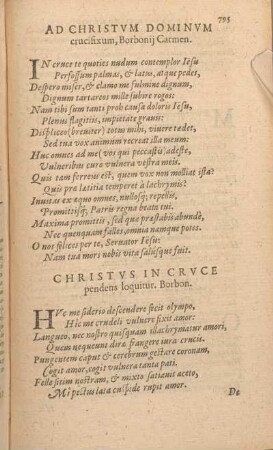 795
AD CHRISTVM DOMINVM
crucifixum, Borbonij Carmen.
IN cruce te quoties nudum contemplor Iësu
Perfossum palmas, & latus, atque pedes,
Despero miser, & clamo me fulmine dignum,
Dignum tartareos mille subire rogos:
Nam tibi sum tanti proh causa doloris Iësu,
Plenus flagitiis, impietate gravis:
Displiceo (breviter) totus mihi, vivere tædet,
Sed tua vox animum recreat illa meum:
Huc omnes ad me (vos qui peccastis) adeste,
Vulneribus cura vulnera vestra meis.
Quis tam ferreus est, quem vox non molliat ista?
Quis præ lætitia temperet à lachrymis?
Invitas ex æquo omnes, nullosque repellis,
Promittisque Patris regna beata tui.
Maxima promittis, sed quæ præstabis abundè,
Nec quenquam falles, omnia namque potes.
O nos felices per te, Servator Iësu:
Nam tua mors nobis vita salusque fuit.
CHRISTVS IN CRVCE
pendens loquitur. Borbon.
HVc me siderio descendere fecit olympo,
Hic me crudeli vulnere fixit amor:
Langueo, nec nostro quisquam illachrymatur amori,
Quem nequeunt diræ frangere iura crucis.
Pungentem caput & cerebrum gestare coronam,
Cogit amor, cogit vulnera tanta pati.
Felle sitim nostram, & mixto satiavit aceto,
Mi pectus lata cuspide rupit amor.
De